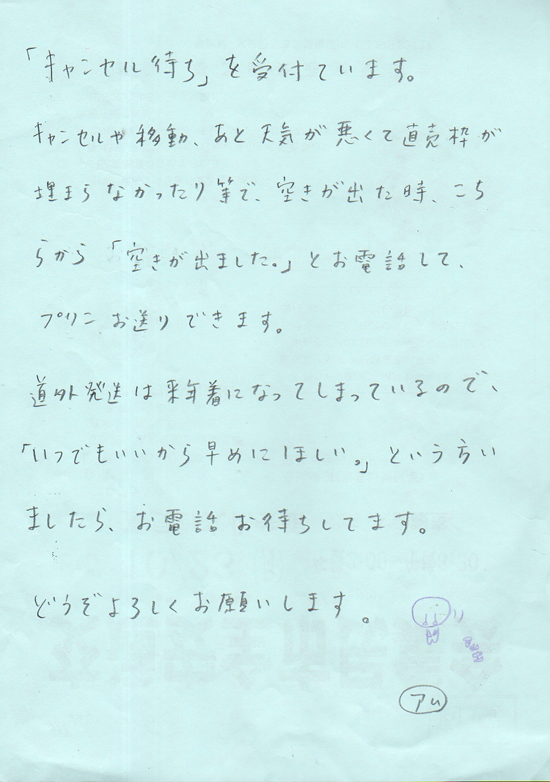 「キャンセル待ち」を受付ています。
キャンセルや移動、あと天気が悪くて直売枠が
埋まらなかったり等で、空きが出た時、こち
らから「空きが出ました。」とお電話して、
プリン お送りできます。
道外発送は来年着になってしまっているので、
「いつでもいいから早めにほしい。」という方い
ましたら、お電話お待ちしてます。
どうぞよろしくお願いします。
アム